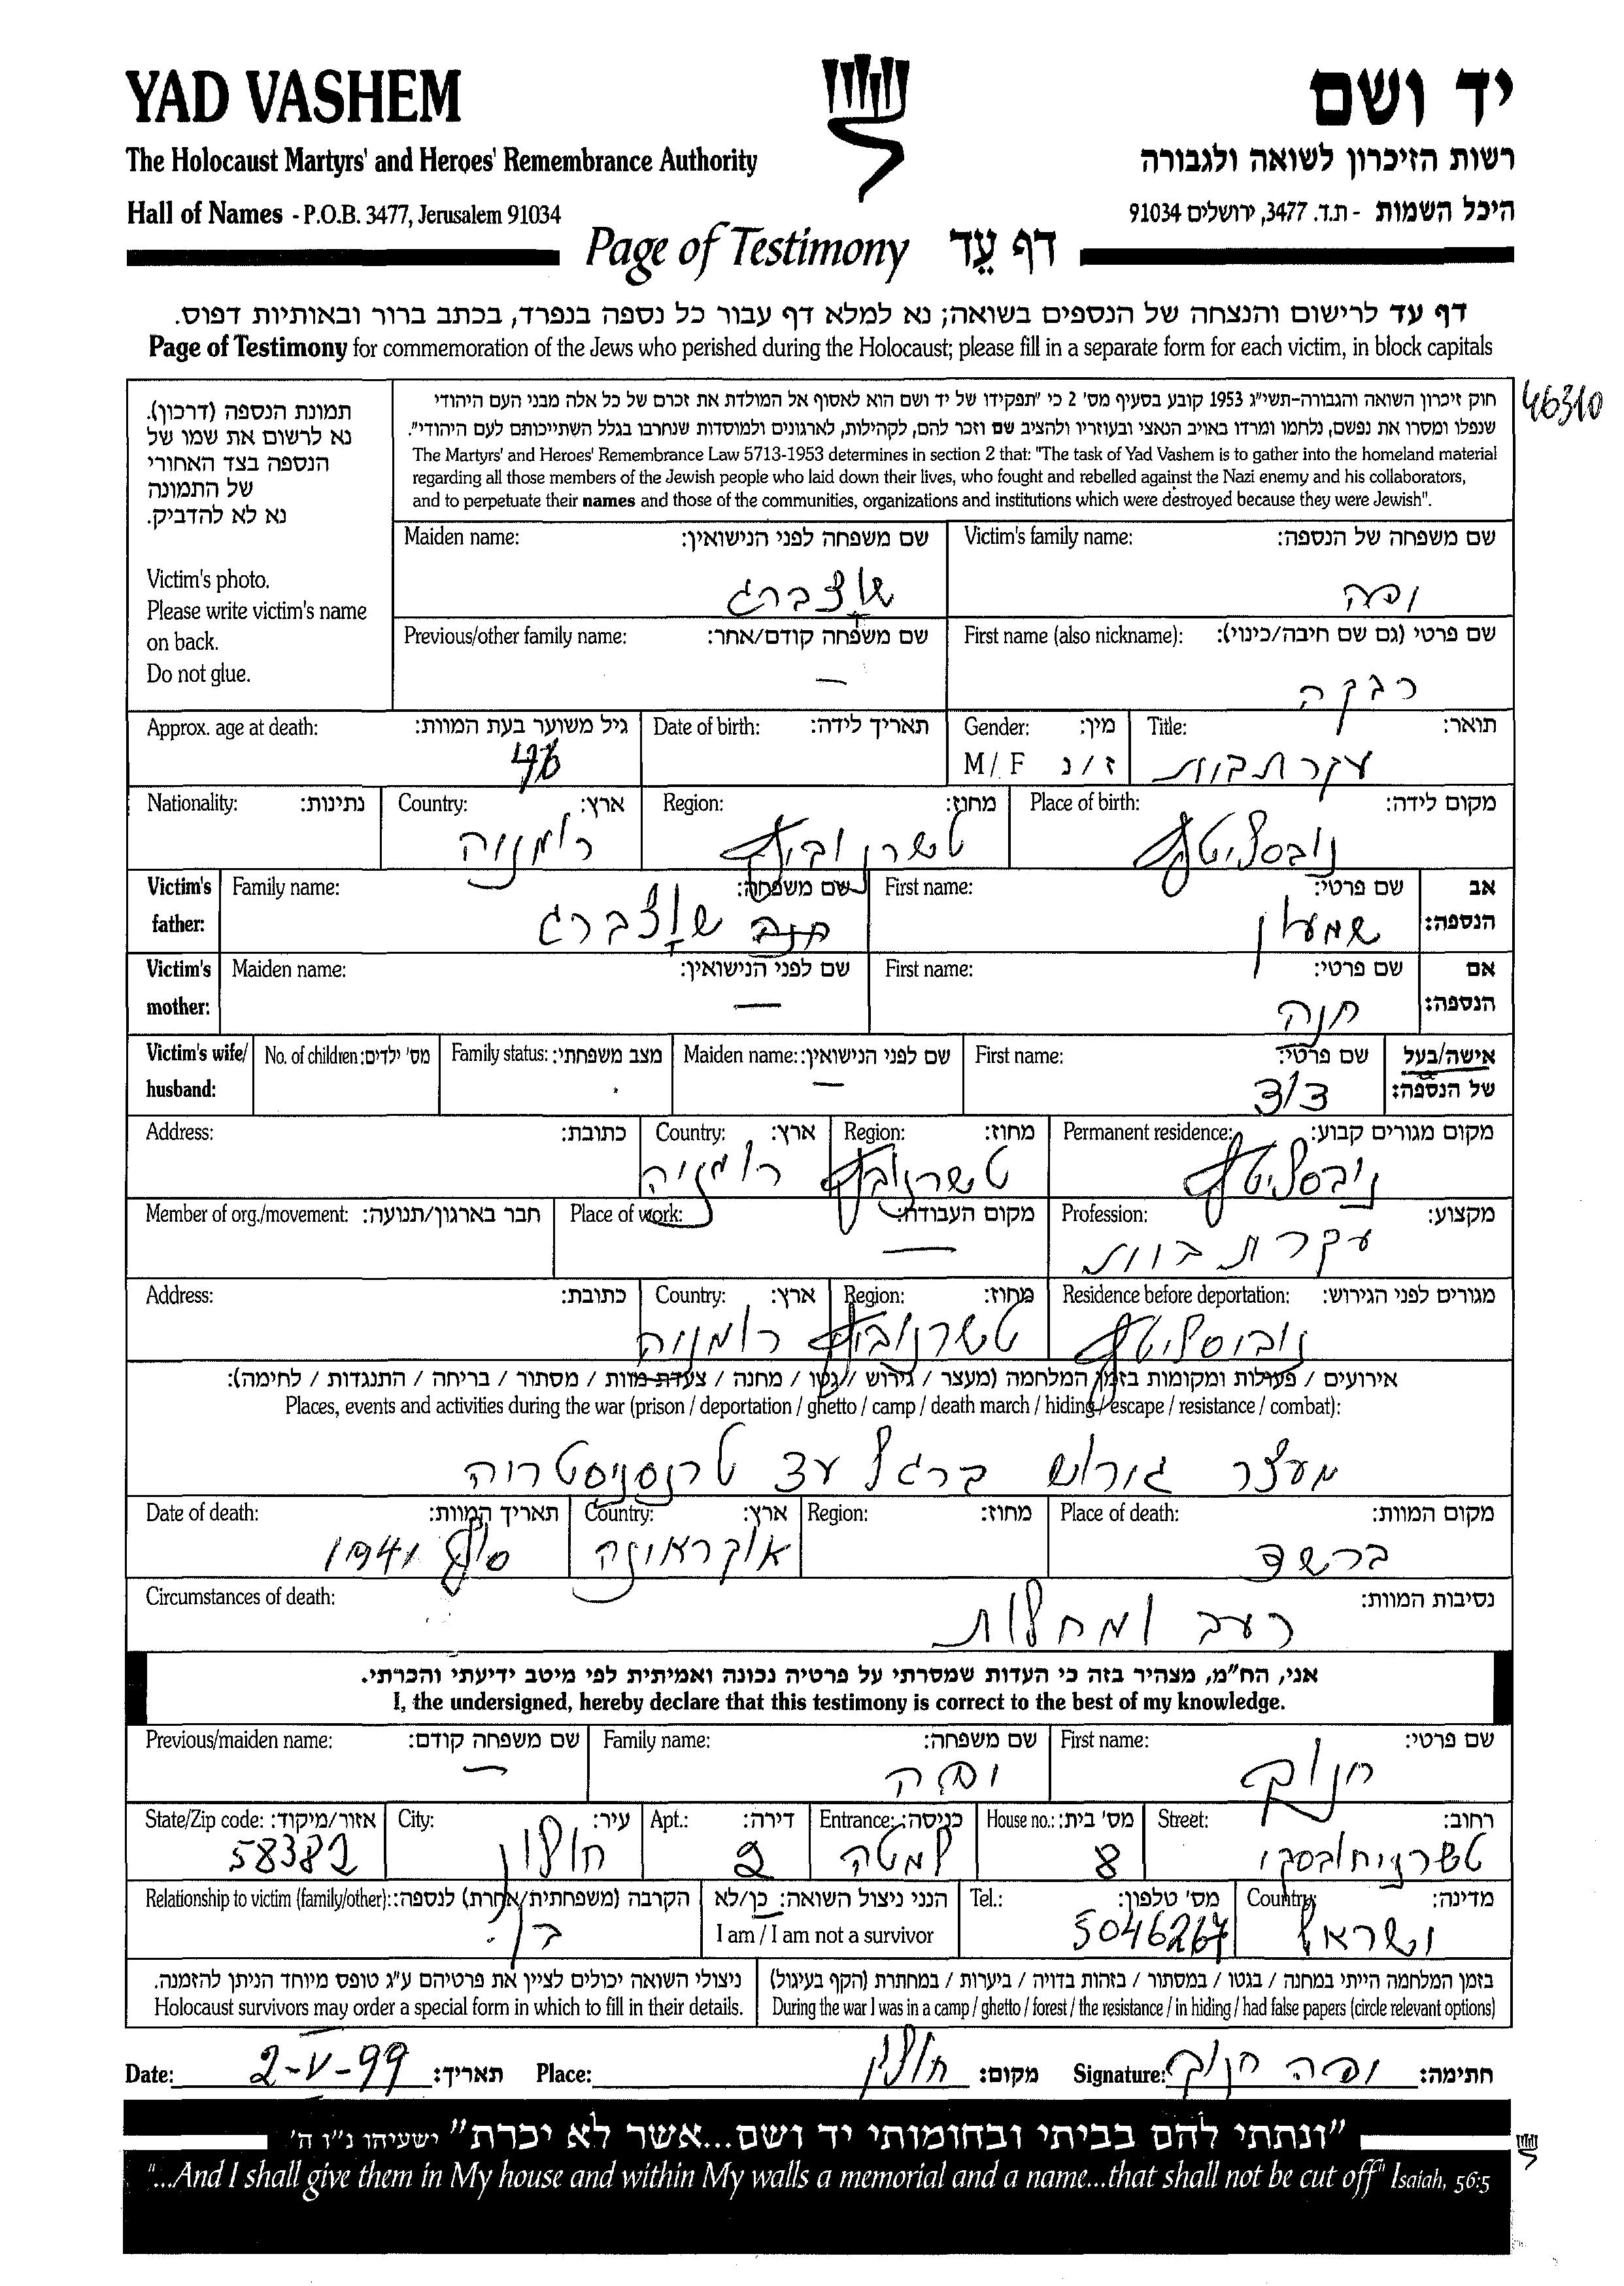 YAD VASHEM
יד ושם
The Holocaust Martyrs' and Heroes' Remembrance Authority
רשות הזיכרון לשואה ולגבורה
Hall of Names - P.O.B. 3477, Jerusalem 91034
היכל השמות - ת.ד. 3477, ירושלים 91034
Page of Testimony דף עֵד
דף עד לרישום והנצחה של הנספים בשואה; נא למלא דף עבור כל נספה בנפרד, בכתב ברור ובאותיות דפוס.
Page of Testimony for commemoration of the Jews who perished during the Holocaust; please fill in a separate form for each victim, in block capitals
46310
תמונת הנספה (דרכון).
נא לרשום את שמו של
הנספה בצד האחורי
של התמונה
נא לא להדביק.
Victim's photo.
Please write victim's name
on back.
Do not glue.
חוק זיכרון השואה והגבורה-תשי"ג 1953 קובע בסעיף מס' 2 כי "תפקידו של יד ושם הוא לאסוף אל המולדת את זכרם של כל אלה מבני העם היהודי
שנפלו ומסרו את נפשם, נלחמו ומרדו באויב הנאצי ובעוזריו ולהציב שם וזכר להם, לקהילות, לארגונים ולמוסדות שנחרבו בגלל השתייכותם לעם היהודי".
The Martyrs' and Heroes' Remembrance Law 5713-1953 determines in section 2 that: "The task of Yad Vashem is to gather into the homeland material
regarding all those members of the Jewish people who laid down their lives, who fought and rebelled against the Nazi enemy and his collaborators,
and to perpetuate their names and those of the communities, organizations and institutions which were destroyed because they were Jewish".
Victim's family name: שם משפחה של הנספה:
Maiden name: שם משפחה לפני הנישואין:
שוצברג
First name (also nickname): שם פרטי (גם שם חיבה/כינוי):
רבקה
Previous/other family name: שם משפחה קודם/אחר:
—
Title: תואר:
עקרת בית
Gender: מין:
M / F ז / נ
Date of birth: תאריך לידה:
Approx. age at death: גיל משוער בעת המוות:
Place of birth: מקום לידה:
נובסליצה
Region: מחוז:
טשרנוביץ
Country: ארץ:
רומניה
Nationality: נתינות:
Victim's father: אב הנספה:
First name: שם פרטי:
שמעון
Family name: שם משפחה:
שוצברג
Victim's mother: אם הנספה:
First name: שם פרטי:
חנה
Maiden name: שם לפני הנישואין:
—
Victim's wife/husband: אישה/בעל של הנספה:
First name: שם פרטי:
דוד
Maiden name: שם לפני הנישואין:
—
Family status: מצב משפחתי:
No. of children: מס' ילדים:
Permanent residence: מקום מגורים קבוע:
נובסליצה
Region: מחוז:
טשרנוביץ
Country: ארץ:
רומניה
Address: כתובת:
Profession: מקצוע:
עקרת בית
Place of work: מקום העבודה:
—
Member of org./movement: חבר בארגון/תנועה:
Residence before deportation: מגורים לפני הגירוש:
נובוסליצה
Region: מחוז:
טשרנוביץ
Country: ארץ:
רומניה
Address: כתובת:
אירועים / פעולות ומקומות בזמן המלחמה (מעצר / גירוש / גטו / מחנה / צעדת מוות / מסתור / בריחה / התנגדות / לחימה):
Places, events and activities during the war (prison / deportation / ghetto / camp / death march / hiding / escape / resistance / combat):
מעצר גורש ברגל עד טרנסניסטריה
Place of death: מקום המוות:
ברשד
Region: מחוז:
Country: ארץ:
אוקראינה
Date of death: תאריך המוות:
סוף 1941
Circumstances of death: נסיבות המוות:
רעב ומחלות
אני, הח"מ, מצהיר בזה כי העדות שמסרתי על פרטיה נכונה ואמיתית לפי מיטב ידיעתי והכרתי.
I, the undersigned, hereby declare that this testimony is correct to the best of my knowledge.
First name: שם פרטי:
חנוך
Family name: שם משפחה:
Previous/maiden name: שם משפחה קודם:
—
Street: רחוב:
טשרניחובסקי
House no.: מס' בית:
8
Entrance: כניסה:
למטה
Apt.: דירה:
2
City: עיר:
חולון
State/Zip code: אזור/מיקוד:
58382
Country: מדינה:
ישראל
Tel.: מס' טלפון:
5046267
הנני ניצול השואה: כן/לא
I am / I am not a survivor
Relationship to victim (family/other): הקרבה (משפחתית/אחרת) לנספה:
בן.
בזמן המלחמה הייתי במחנה / בגטו / במסתור / בזהות בדויה / ביערות / במחתרת (הקף בעיגול)
During the war I was in a camp / ghetto / forest / the resistance / in hiding / had false papers (circle relevant options)
ניצולי השואה יכולים לציין את פרטיהם ע"ג טופס מיוחד הניתן להזמנה.
Holocaust survivors may order a special form in which to fill in their details.
Date: 2-V-99 תאריך: Place: חולון מקום: Signature: חנוך חתימה:
"ונתתי להם בביתי ובחומותי יד ושם...אשר לא יכרת" ישעיהו נ"ו ה'
"...And I shall give them in My house and within My walls a memorial and a name...that shall not be cut off" Isaiah, 56:5